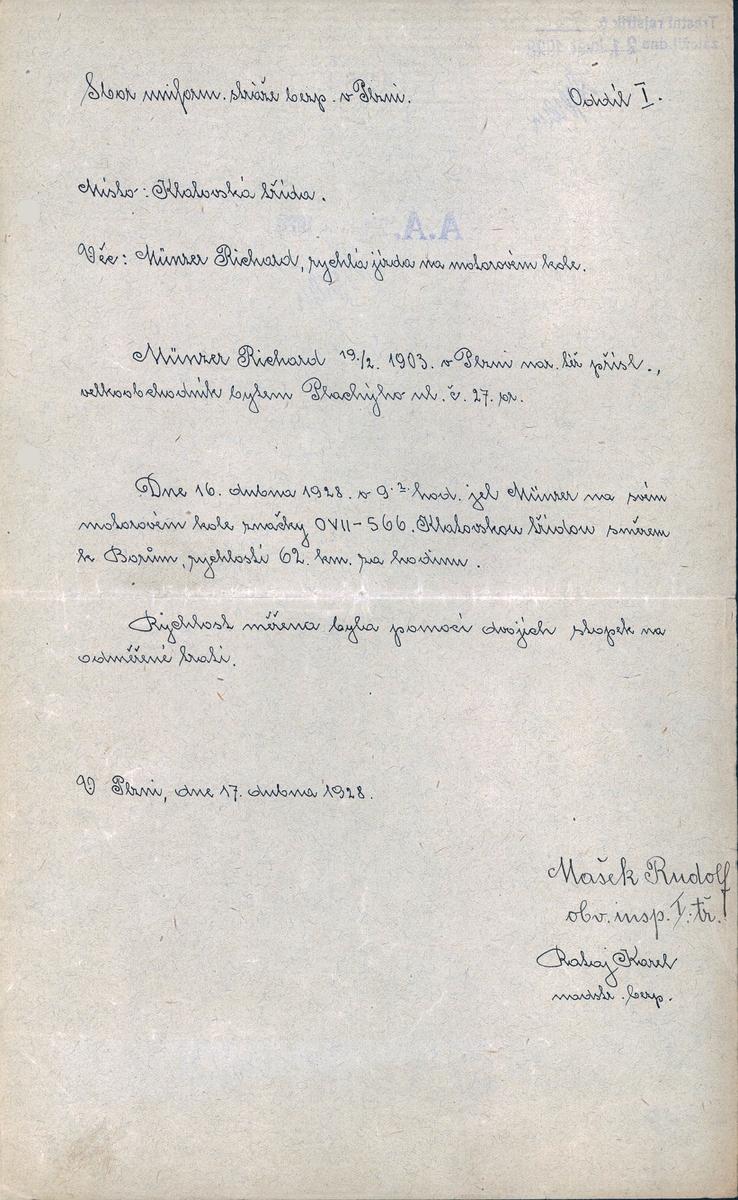 Sbor uniform. stráže bezp. v Plzni. Oddíl I.
Místo: Klatovská třída.
Věc: Münzer Richard, rychlá jízda na motorovém kole.
Münzer Richard 19./2. 1903. v Plzni nar. též přísl.,
velkoobchodník bytem Plachýho ul. č. 27. pr.
Dne 16. dubna 1928. v 9.² hod. jel Münzer na svém
motorovém kole značky OVII-566. Klatovskou třídou směrem
k Borům, rychlostí 62. km. za hodinu.
Rychlost měřena byla pomocí dvojích stopek na
odměřené trati.
V Plzni, dne 17. dubna 1928.
Mašek Rudolf
obv. insp. I. tř.
Rataj Karel
nadstr. bezp.